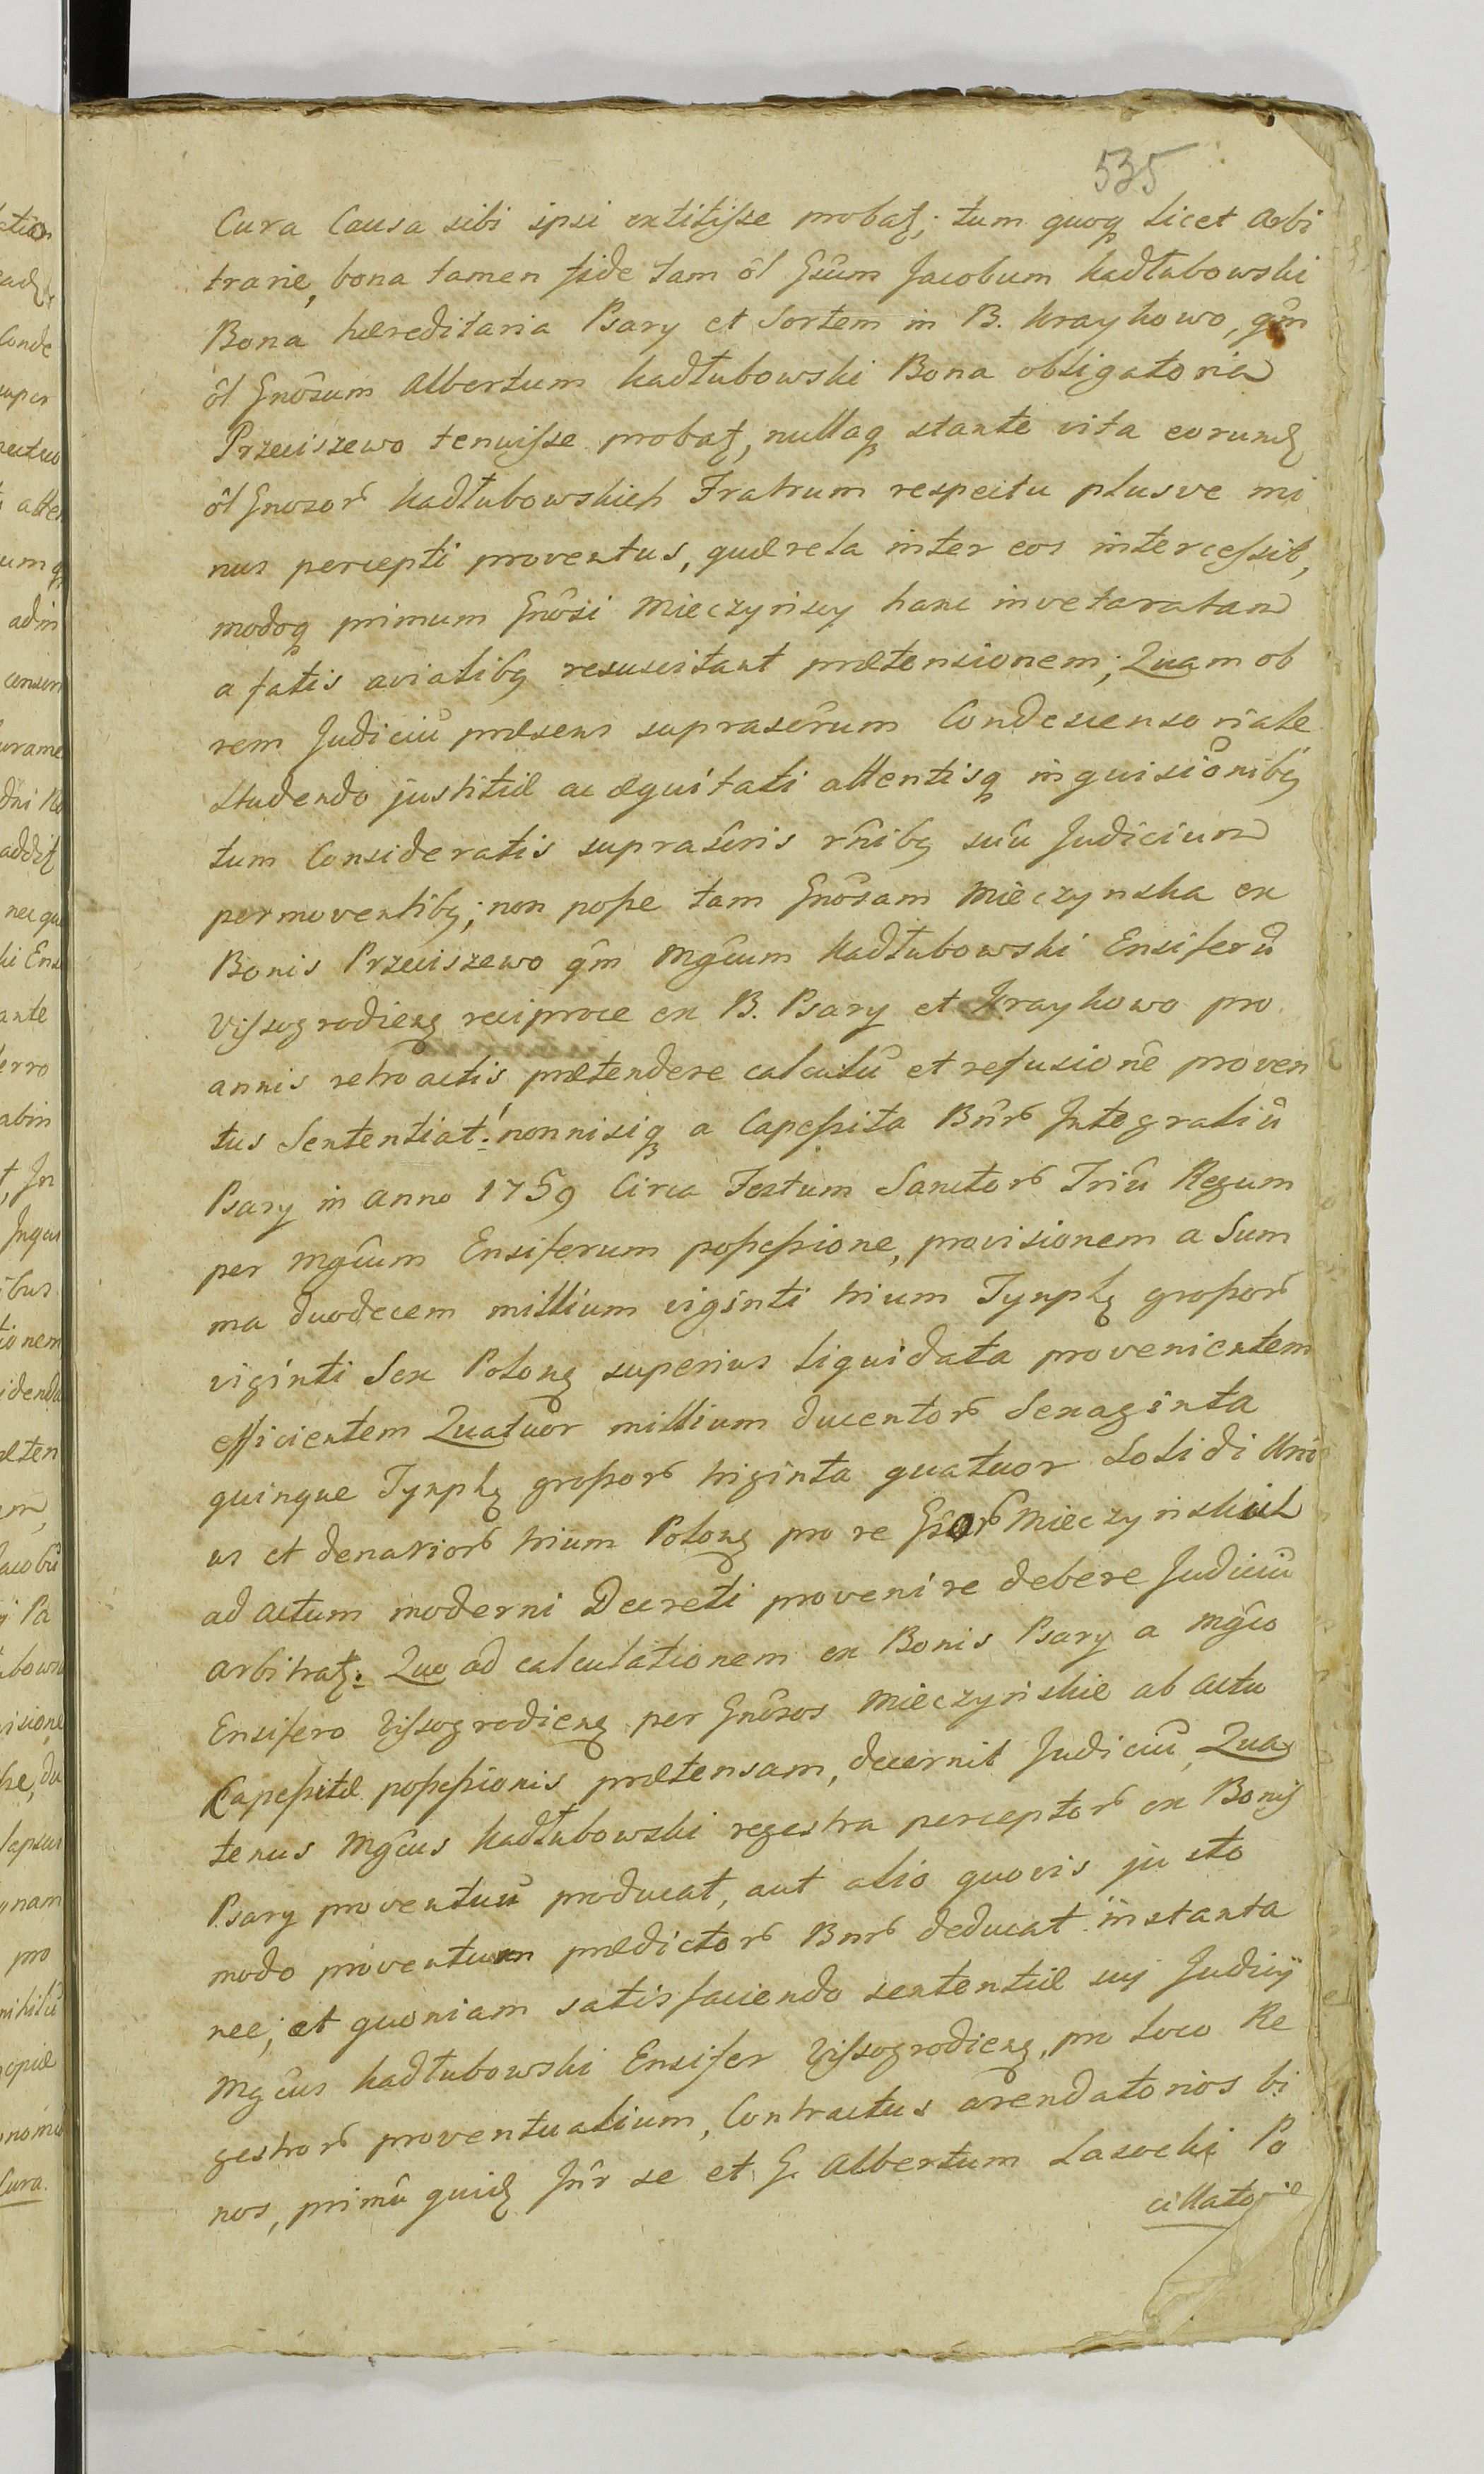 535
Cura Causa sibi ipsi extitisse probatꝫ; tum quoqꝫ licet Arbi
trarie, bona tamen fide tam ôl Gsûm Jacobum Kadłubowski
Bona hæreditaria Psary et Sortem in B. Kraykowo, qm̂
ôl Gnôsum Albertum Kadłubowski Bona obligatoria
Przeciszewo tenuisse probatꝫ, nullaqꝫ stante vita eorundꝫ
ôl Gnosor̂ Kadłubowskich Fratrum respectu plusve mi
nus percepti proventus, quærela inter eos intercessit,
modoqꝫ primum Gnôsi Mieczyńscy hanc invetaratam
a fatis avialibꝫ resuscitant prætensionem; Quam ob
rem Judiciû præsens suprasĉrum Condescensoriale
studendo justitiæ ac æquitati attentisqꝫ inquisiônibꝫ
tum Consideratis suprasĉris rn̂ibꝫ suû Judicium
permoventibꝫ; non posse tam Gnôsam Mieczynska ex
Bonis Przeciszewo qm̂ Mgĉum Kadłubowski Ensiferû
Vissogrodiensꝫ reciproce ex B. Psary et Kraykowo pro
annis retroactis prætendere calculû et refusionê proven
tus Sententiat: nonnisiqꝫ a Capessita Bnr̂ Integraliû
Psary in Anno 1759 Circa Festum Sanctor̂ Triû Regum
per Mgĉum Ensiferum possessione, provisionem a Sum
ma duodecem millium viginti trium Tynphꝫ grossor̂
viginti Sex Polonꝫ superius liquidata provenientem
efficientem Quatuor millium ducentor̂ Sexaginta
quinque Tynphꝫ grossor̂ triginta quatuor Solidi Uni
us et denarior̂ trium Polonꝫ pro re Gsor̂ Mieczyńskich
ad Actum moderni Decreti provenire debere Judiciû
arbitratꝫ: Quo ad calculationem ex Bonis Psary a Mgĉo
Ensifero Vissogrodiensꝫ per Gnôsos Mieczyńskie ab actu
Capessitæ possessionis prætensam, decernit Judiciû, Qua
tenus Mgĉus Kadłubowski regestra perceptor̂ ex Bonis
Psary proventuû producat, aut alio quovis justo
modo proventum prædictor̂ Bnr̂ deducat instanta
nee; et quoniam satisfaciendo sententiæ sui Judicij
Mgĉus Kadłubowski Ensifer Vissogrodiensꝫ, pro loco Re
gestror̂ proventualium, Contractus arendatorios bi
nos, primû quidꝫ Int̂r se et G. Albertum Lasocki Po
cillatoriæ